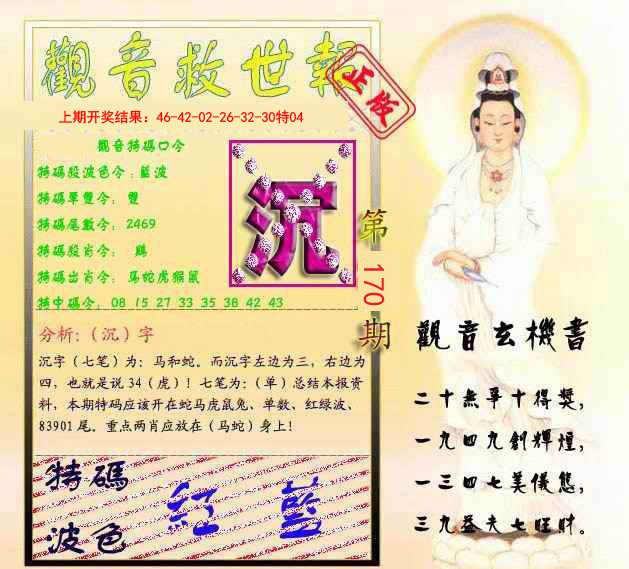 觀音救世報
正版
上期开奖结果：46-42-02-26-32-30特04
觀音特碼口令
特碼殺波色令：藍波
特碼單雙令： 雙
特碼尾數令： 2469
特碼殺肖令： 鷄
特碼出肖令： 馬蛇虎猴鼠
特中碼令： 08 15 27 33 35 38 42 43
沉
第170期
分析：（沉）字
沉字（七笔）为：马和蛇。而沉字左边为三，右边为
四，也就是说 34（虎）！七笔为：（单）总结本报资
料，本期特码应该开在蛇马虎鼠兔、单数、红绿波、
83901 尾。重点两肖应放在（马蛇）身上！
特碼
波色
紅 藍
觀音玄機書
二十無爭十得獎，
一九四九創輝煌，
一三四七美儀態，
三九益夫七旺财。